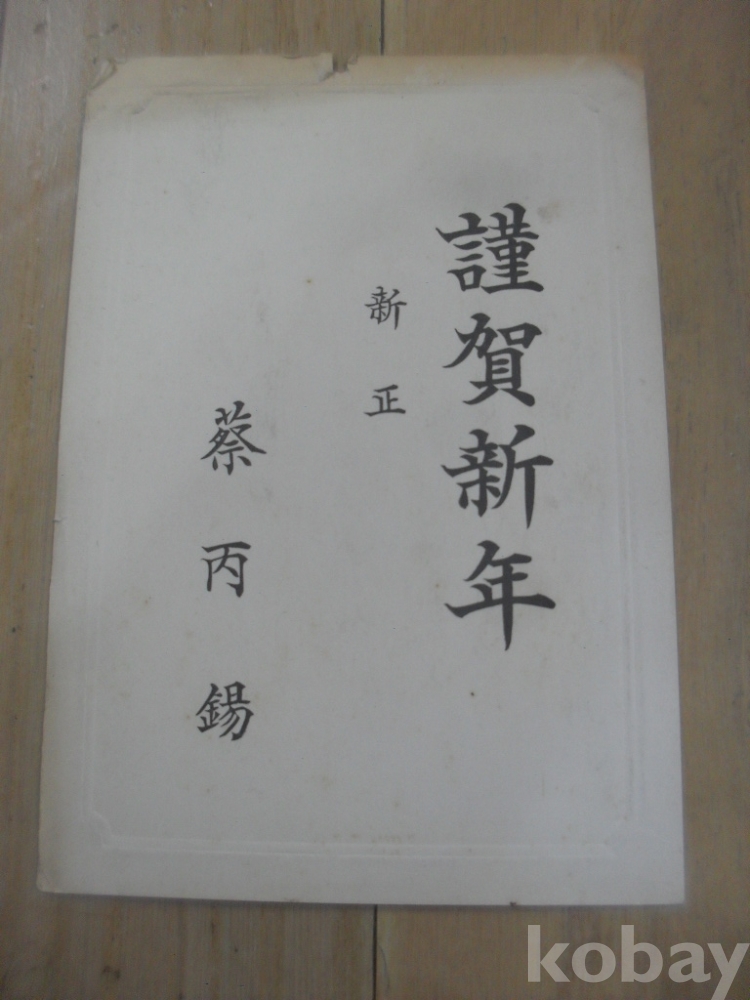 謹賀新年
新正
蔡丙錫
kobay